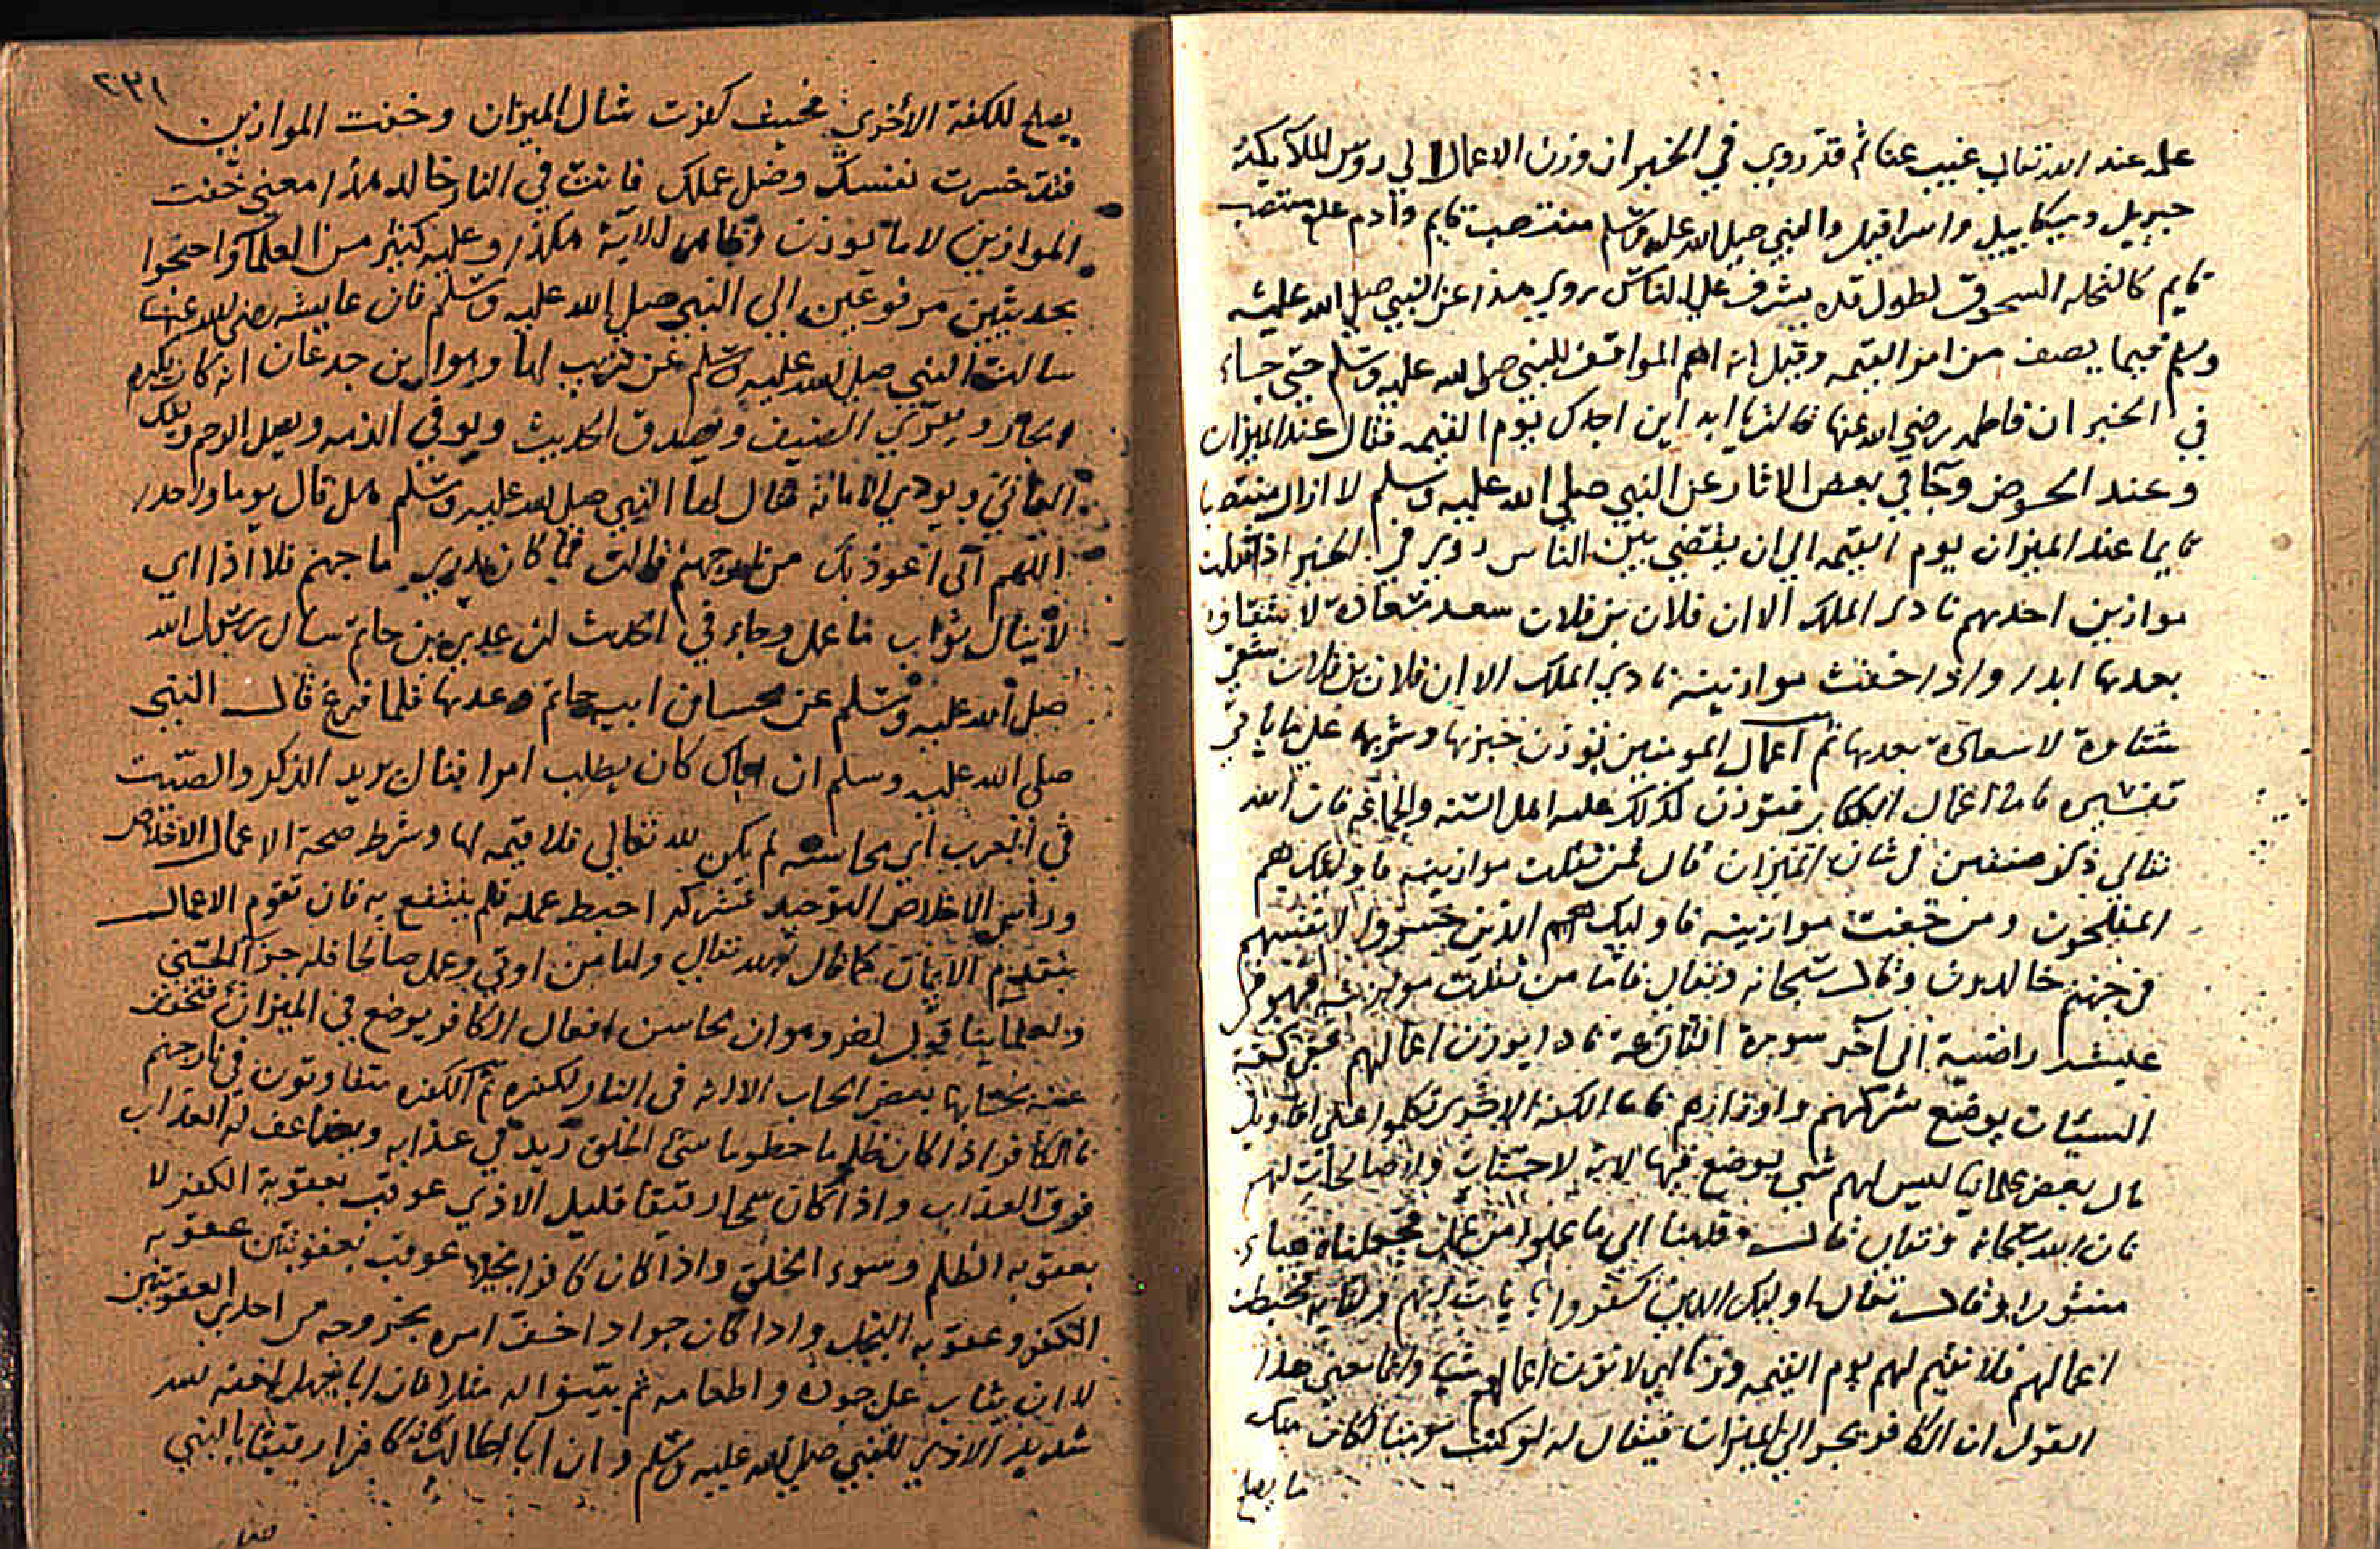 علمه عند الله تعالى غيب عنا ثم قد روي في الخبر ان وزن الاعمال الي روس الملائكة
جبريل وميكاييل واسرافيل والنبي صلى الله عليه وسلم منتصب قايم وادم عليه منتصب
قايم كالنخلة السحوق لطول قده يشرف على الناس روي هذا عن النبي صلى الله عليه
وسلم فيما يصف من امر القيمه وقيل انه اهم المواقف للنبي صلى الله عليه وسلم حتى جاء
في الخبر ان فاطمه رضي الله عنها قالت يا ابه اين اجدك يوم القيمه فقال عند الميزان
وعند الحوض وجا في بعض الاثار عن النبي صلى الله عليه وسلم لا ازال منتصبا
قايما عند الميزان يوم القيمه الي ان يقضي بين الناس روي في الخبر اذا ثقلت
موازين احدهم نادى الملك الا ان فلان بن فلان سعد سعادة لا شقاوة
بعدها ابدا واذا خفت موازينه نادى الملك الا ان فلان بن فلان شقي
شقاوة لا سعادة بعدها ثم اعمال المومنين توزن خيرها وشرها على ما ياتي
تفسيره فاما اعمال الكفار فتوزن كذلك عليه اهل السنه والجماعه فان الله
تعالى ذكر صنفين في شان الميزان قال فمن ثقلت موازينه فاوليك هم
المفلحون ومن خفت موازينه فاوليك هم الذين خسروا انفسهم
في جهنم خالدون وقال سبحانه وتعالى فاما من ثقلت موازينه فهو في
عيشة راضية الى آخر سورة القارعة فاذا يوزن اعمالهم ففي كفة
السيئات يوضع شركهم واوزارهم فاما الكفه الاخرى تكلموا على اقاويل
قال بعض علماينا ليس لهم شي يوضع فيها لانه لا حسنات ولا صالحات لهم
فان الله سبحانه وتعالى قال وقدمنا الى ما عملوا من عمل فجعلناه هباء
منثورا وقال تعالى اوليك الذين كفروا بايات ربهم ولقايه فحبطت
اعمالهم فلا نقيم لهم يوم القيمه وزنا اي لا نزن اعمالهم شيا وانما معنى هذا
القول ان الكافر يجر الي الميزان فيقال له لو كنت مومنا لكان منك
ما يصلح
٢٣١
يصلح للكفة الأخرى فحيث كفرت شال الميزان وخفت الموازين
فقد خسرت نفسك وضل عملك فانت في النار خالد هذا معنى خفت
الموازين لا ما يوزن وظاهر الآية هكذا وعليه كثير من العلما واحتجوا
بحديثين مرفوعين الى النبي صلى الله عليه وسلم فان عايشه رضى الله عنها
سالت النبي صلى الله عليه وسلم عن قريب لها وهو ابن جدعان انه كان يكرم
الجار ويقري الضيف ويصدق الحديث ويوفي الذمه ويصل الرحم ويفك
العاني ويودي الامانة فقال لها النبي صلى الله عليه وسلم هل قال يوما واحدا
اللهم اني اعوذ بك من نار جهنم قالت فما كان يدري ما جهنم فلا اذا اي
لا ينال ثواب ما عمل وجاء في الحديث ان عدي بن حاتم سال رسول الله
صلى الله عليه وسلم عن محاسن ابيه حاتم وعدها فلما فرغ قال النبي
صلى الله عليه وسلم ان اباك كان يطلب امرا فنال يريد الذكر والصيت
في العرب اي محاسنه لم يكن لله تعالى فلا قيمه لها وشرط صحة الاعمال الاخلاص
وراس الاخلاص التوحيد فشركه احبط عمله فلم ينتفع به فان تقوم الاعمال
بتقديم الايمان كما قال الله تعالى واما من اوتي وعمل صالحا فله جزآ الحسنى
ولعلماينا قول اخر وهو ان محاسن افعال الكافر يوضع في الميزان فتخفف
عنه بحسابها بعض العذاب الا انه في النار لكفره ثم الكفره متفاوتون في نار جهنم
فالكافر اذا كان ظلوما حطوما سئ الخلق زيد في عذابه ويضاعف له العذاب
فوق العذاب واذا كان سمحا رقيقا قليل الاذي عوقب بعقوبة الكفر لا
بعقوبه الظلم وسوء الخلق واذا كان كافرا بخيلا عوقب بعقوبتين عقوبه
الكفر وعقوبه البخل واذا كان جوادا خفف امره بخروجه من احدى العقوبتين
لا ان يثاب على جوده واطعامه ثم يتبوا له مقارا فان ابا جهل لعنه الله
شديد الاذي للنبي صلى الله عليه وسلم وان ابا طالب كان كافرا رقيقا بالنبي